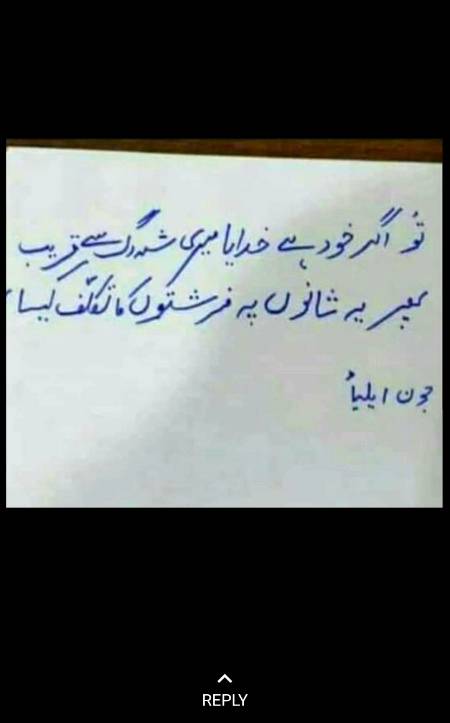 تُو اگر خود ہے خدایا میری شہ رگ سے قریب
پھر یہ شانوں پہ فرشتوں کا تکلّف کیسا
جون ایلیاؔ
REPLY